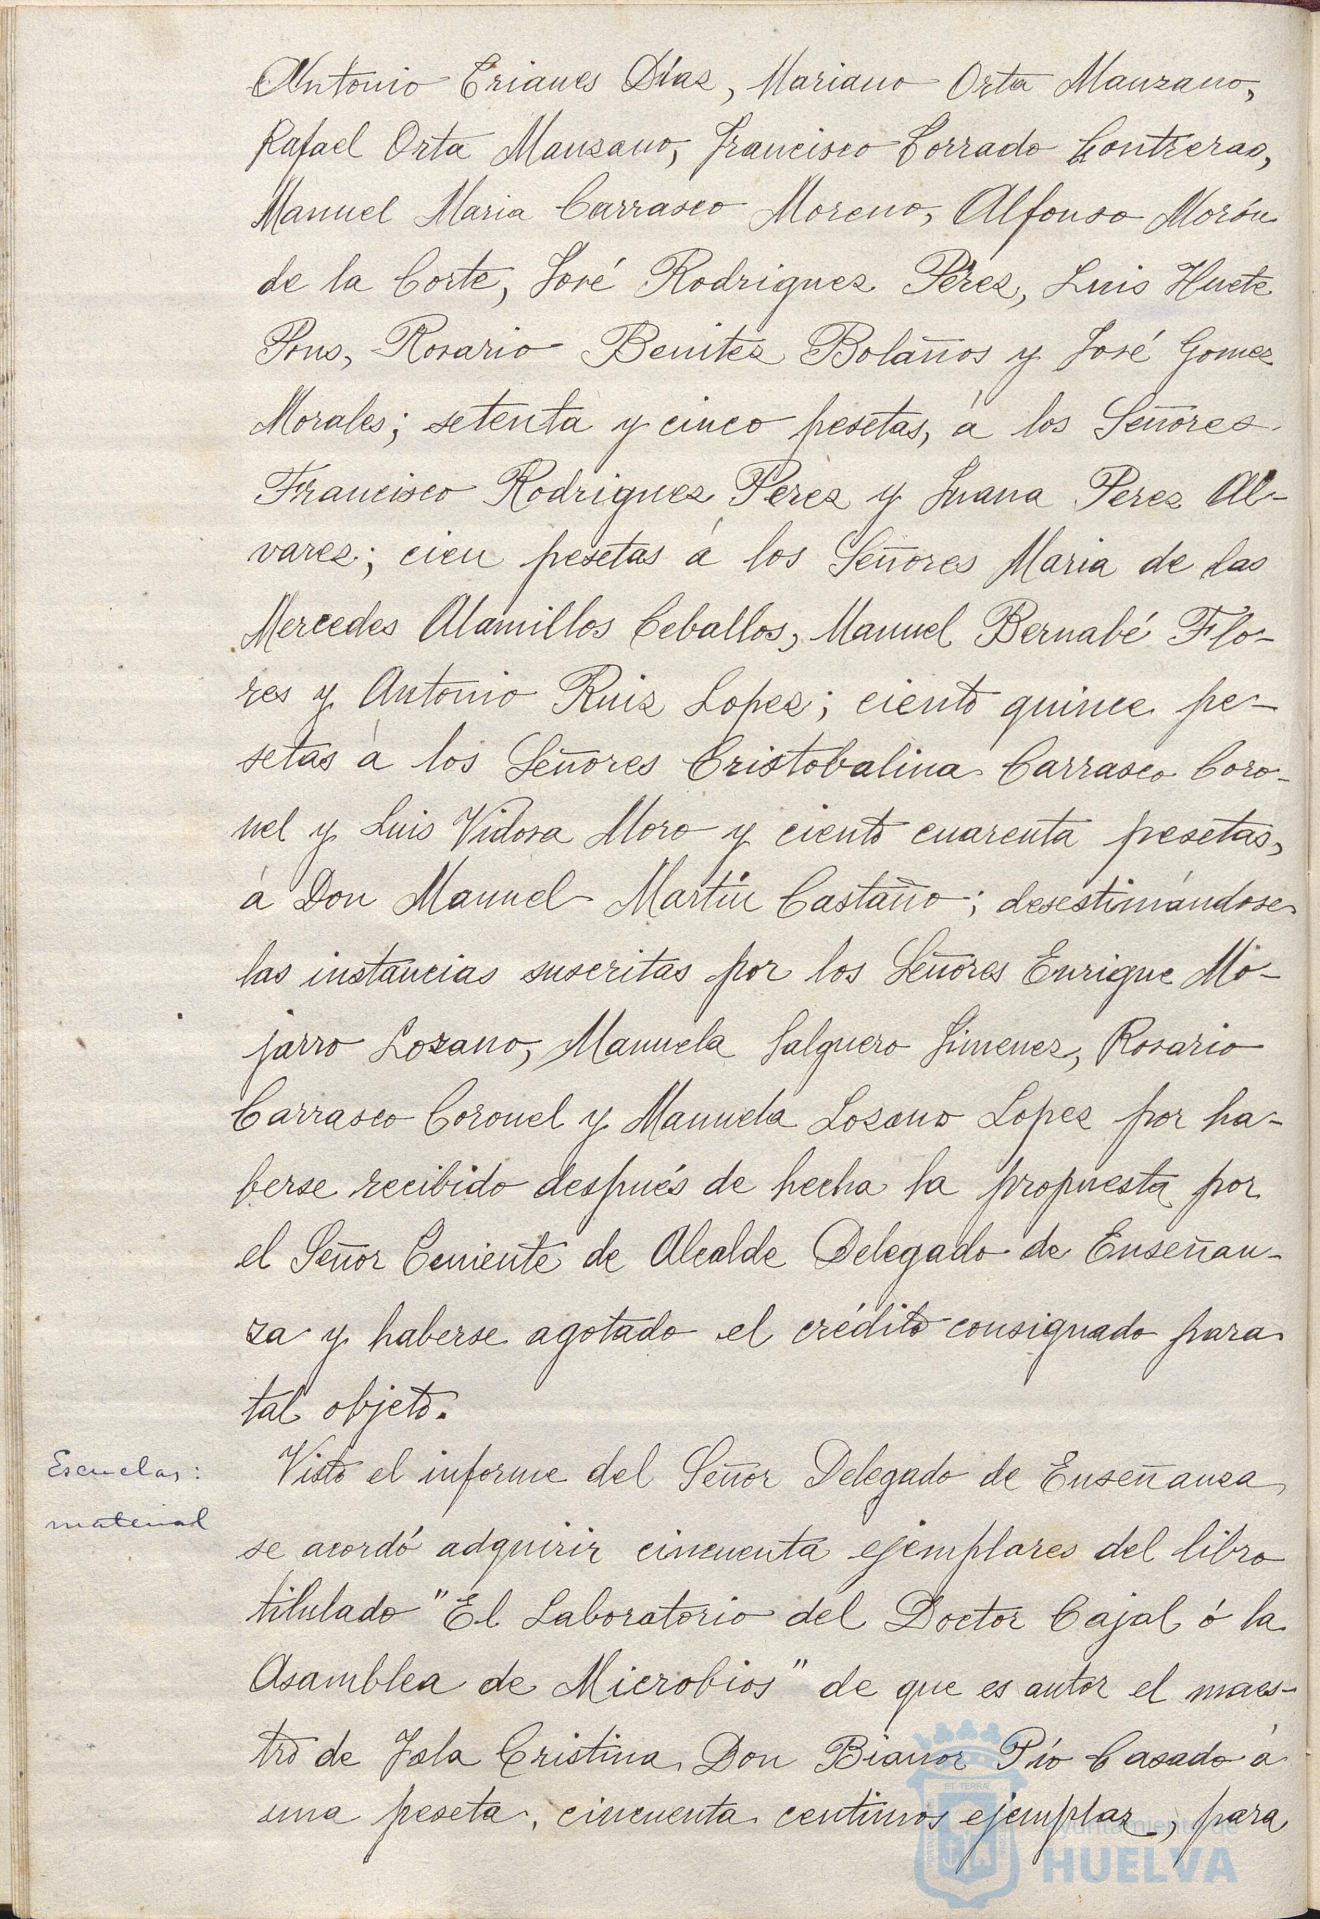 Antonio Trianes Días, Mariano Orta Manzano,
Rafael Orta Manzano, Francisco Torrado Contreras,
Manuel Maria Carrasco Moreno, Alfonso Morón
de la Corte, José Rodriguez Pérez, Luis Huete
Pons, Rosario Benitez Bolaños y José Gomez
Morales; setenta y cinco pesetas, á los Señores
Francisco Rodriguez Perez y Juana Perez Al-
varez; cien pesetas á los Señores Maria de las
Mercedes Alamillos Ceballos, Manuel Bernabé Flo-
res y Antonio Ruiz Lopez; ciento quince pe-
setas á los Señores Cristobalina Carrasco Coro-
nel y Luis Vidosa Moro y ciento cuarenta pesetas,
á Don Manuel Martín Castaño; desestimándose
las instancias suscritas por los Señores Enrique Mo-
jarro Lozano, Manuela Salguero Jimenez, Rosario
Carrasco Coronel y Manuela Lozano Lopez por ha-
berse recibido después de hecha la propuesta por
el Señor Teniente de Alcalde Delegado de Enseñan-
za y haberse agotado el crédito consignado para
tal objeto.
Escuelas:
material
Visto el informe del Señor Delegado de Enseñanza
se acordó adquirir cincuenta ejemplares del libro
titulado "El Laboratorio del Doctor Cajal ó la
Asamblea de Microbios" de que es autor el maes-
tro de Isla Cristina Don Bianor Pío Casado á
una peseta, cincuenta centimos ejemplar, para
Ayuntamiento de
HUELVA